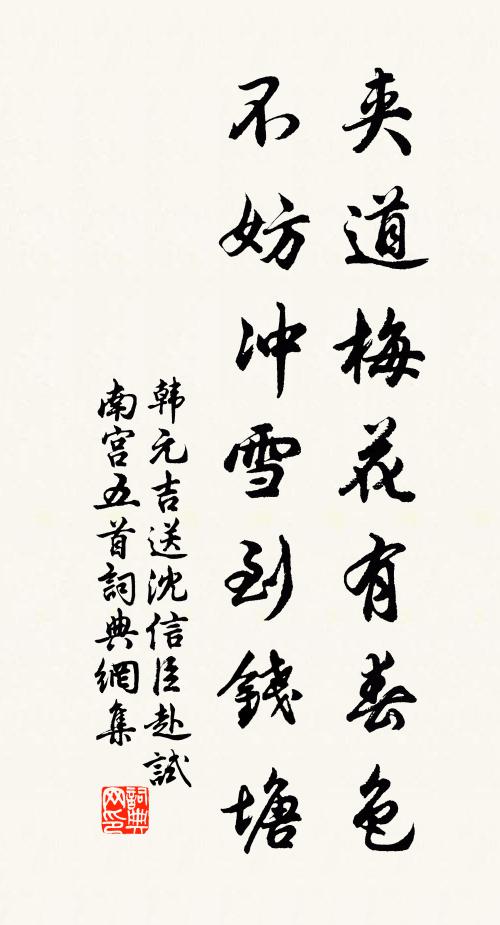 夹道梅花有春色
不妨冲雪到錢塘
韩元吉送沈信臣赴試
南宫五首詞典網集
詞典
网印